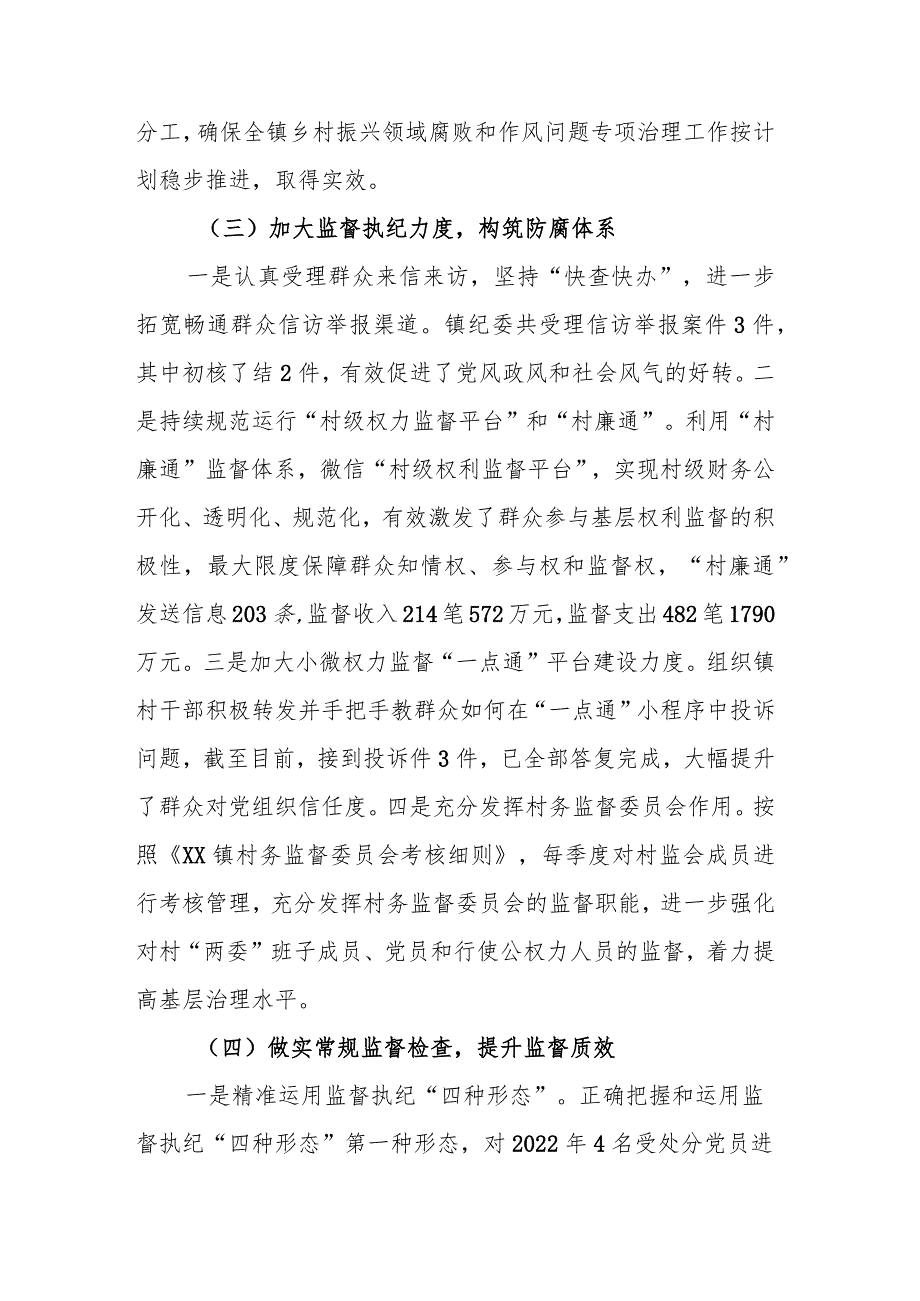 分工，确保全镇乡村振兴领域腐败和作风问题专项治理工作按计
划稳步推进，取得实效。
（三）加大监督执纪力度，构筑防腐体系
一是认真受理群众来信来访，坚持“快查快办”，进一步
拓宽畅通群众信访举报渠道。镇纪委共受理信访举报案件3件，
其中初核了结2件，有效促进了党风政风和社会风气的好转。二
是持续规范运行“村级权力监督平台”和“村廉通”。利用“村
廉通”监督体系，微信“村级权利监督平台”，实现村级财务公
开化、透明化、规范化，有效激发了群众参与基层权利监督的积
极性，最大限度保障群众知情权、参与权和监督权，“村廉通”
发送信息203条,监督收入214笔572万元,监督支出482笔1790
万元。三是加大小微权力监督“一点通”平台建设力度。组织镇
村干部积极转发并手把手教群众如何在“一点通”小程序中投诉
问题，截至目前，接到投诉件3件，已全部答复完成，大幅提升
了群众对党组织信任度。四是充分发挥村务监督委员会作用。按
照《XX镇村务监督委员会考核细则》，每季度对村监会成员进
行考核管理，充分发挥村务监督委员会的监督职能，进一步强化
对村“两委”班子成员、党员和行使公权力人员的监督，着力提
高基层治理水平。
（四）做实常规监督检查，提升监督质效
一是精准运用监督执纪“四种形态”。正确把握和运用监
督执纪“四种形态”第一种形态，对2022年4名受处分党员进